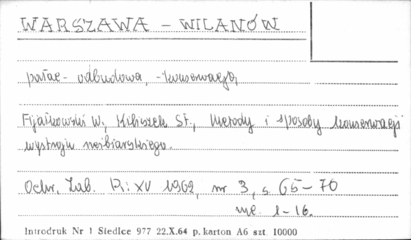 WARSZAWA - WILANÓW
pałac - odbudowa, - konserwacja,
Fijałkowski W., St., Metody i sposoby konserwacji
wystroju rzeźbiarskiego.
Ochr. Zab. R: XV 1962, nr 3, s. 65-70
1-16.
Introdruk Nr 1 Siedlce 977 22.X.64 p. karton A6 szt. 10000